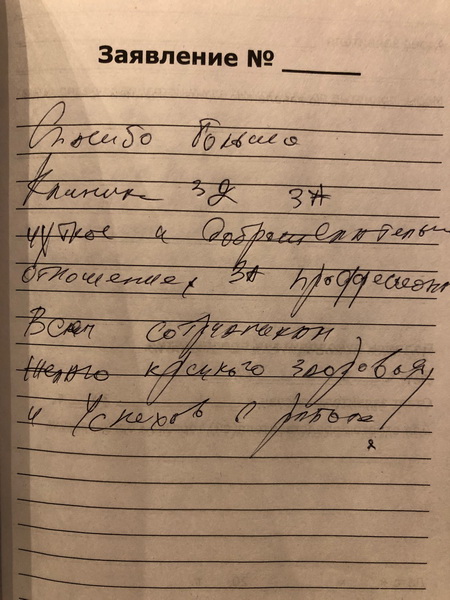 Заявление № ____
Спасибо большое
Клиники 3Д за
чуткое и доброжелательн
отношение, за профессион
Всем сотрудникам
желаю крепкого здоровья,
и Успехов в работе